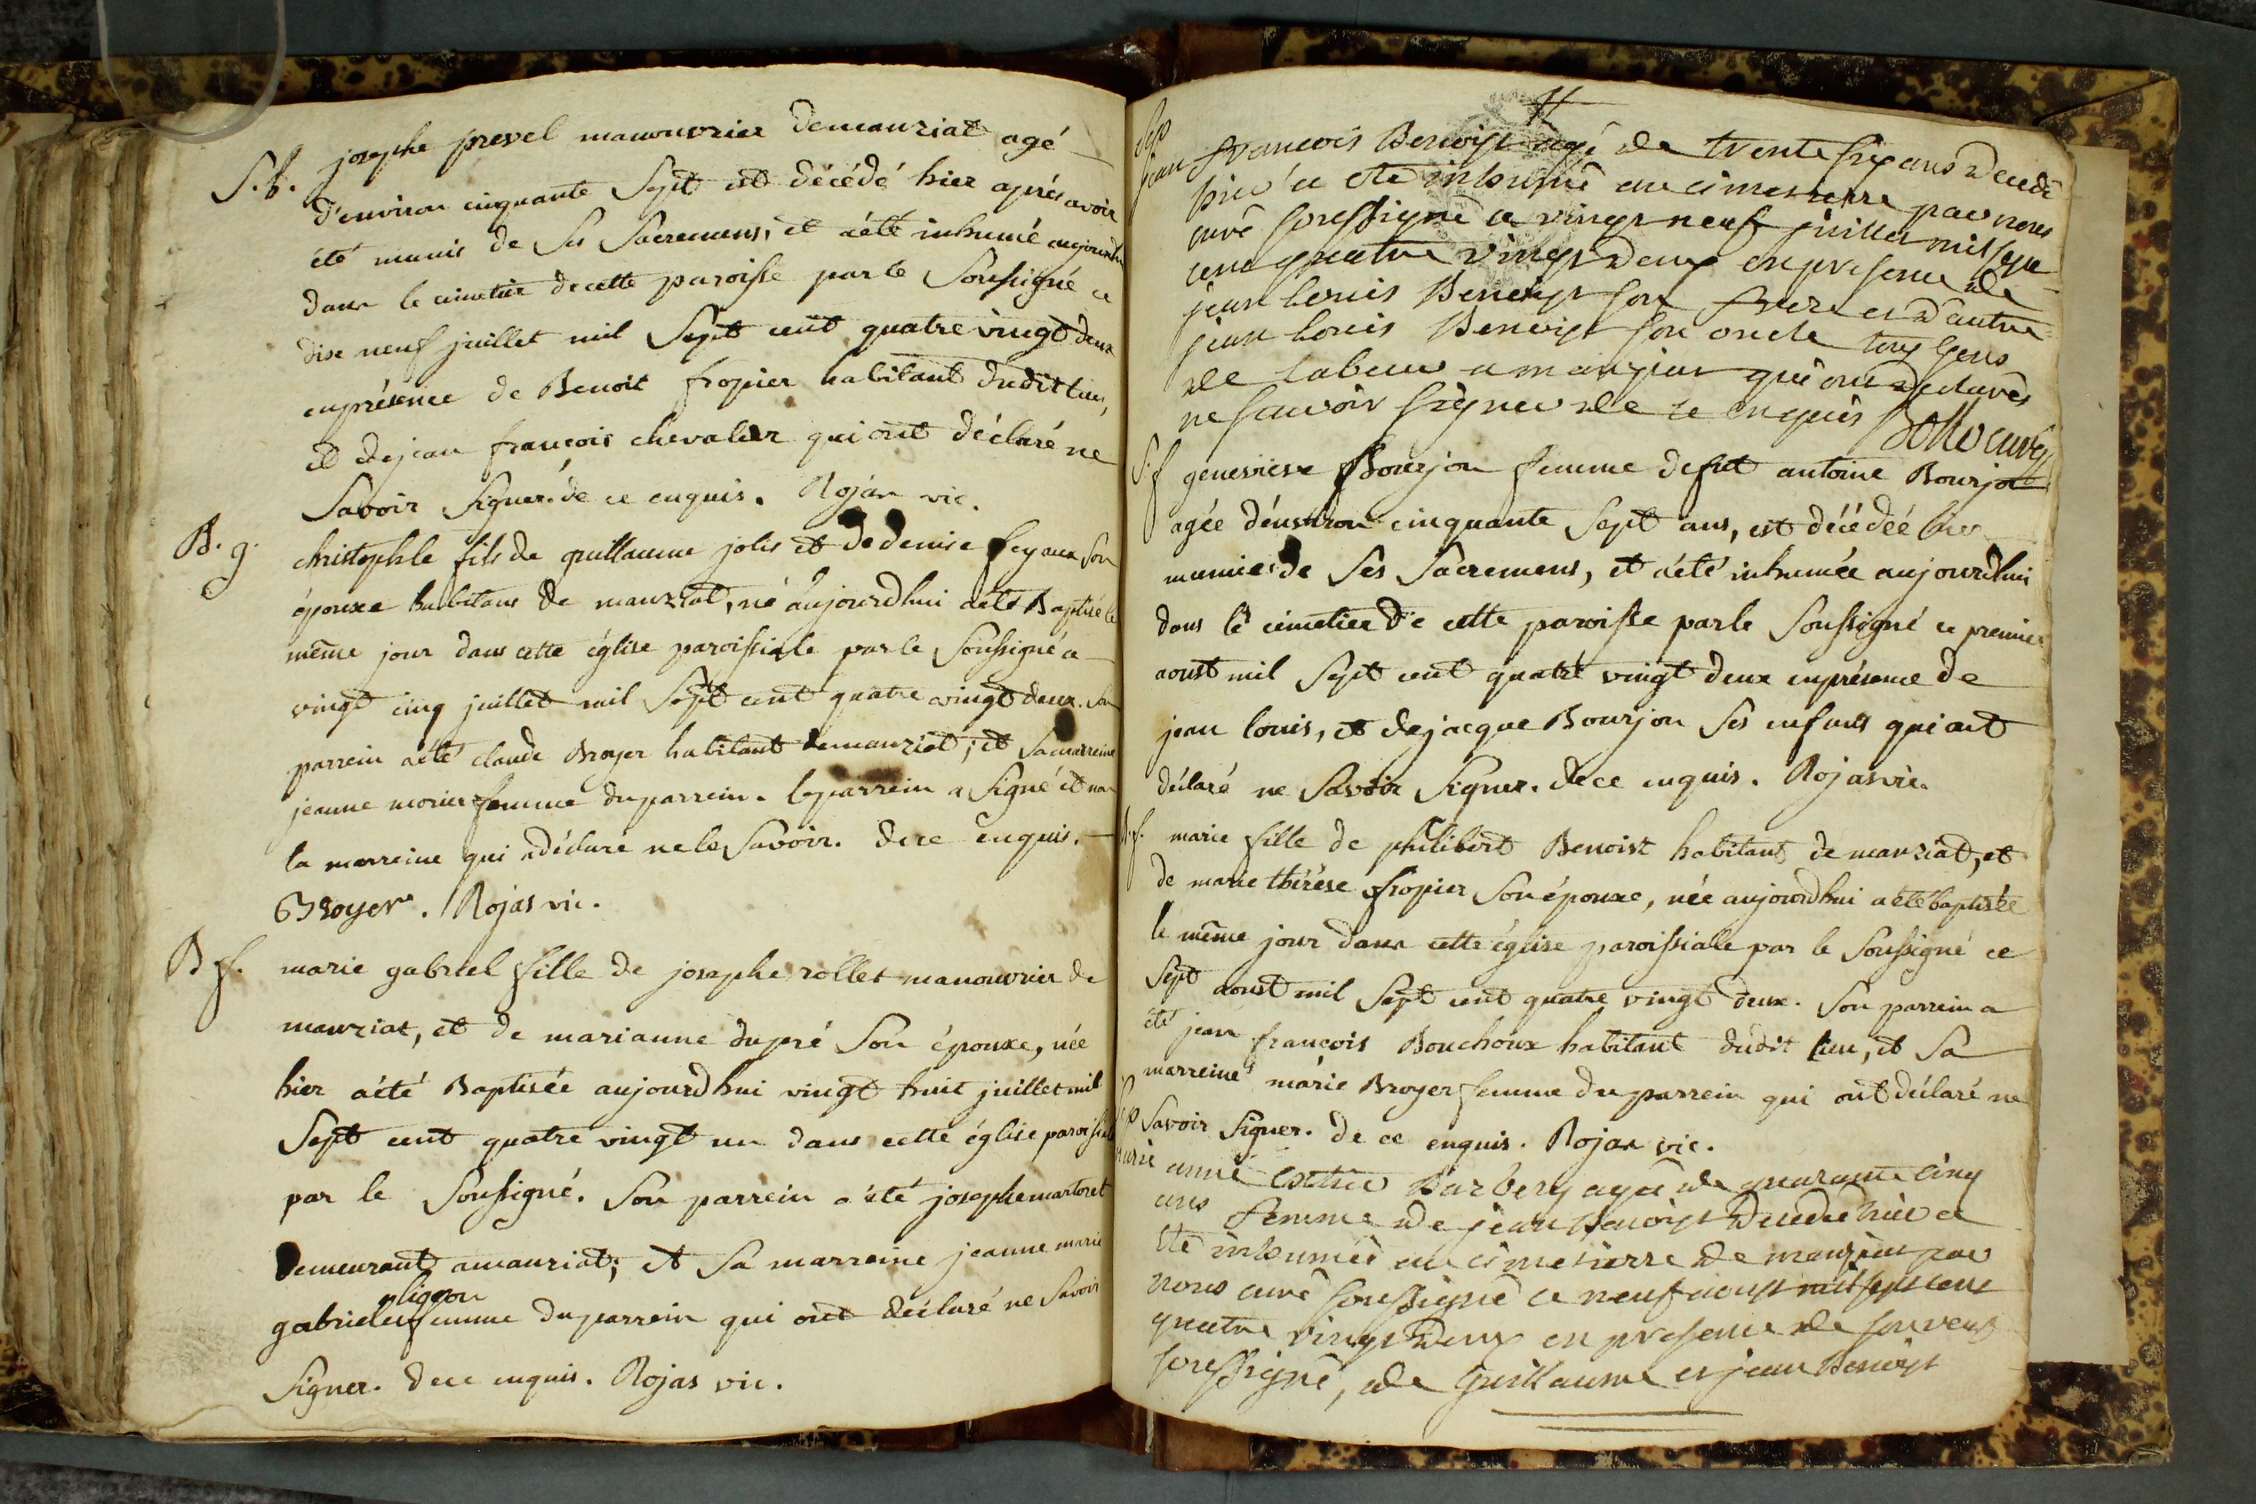 S. h. josephe prevel manouvrier demanziat agé
d'environ cinquante Sept est décédé hier après avoir
été munis de Ses Sacremens, et a été inhumé aujourdhui
dans le cimetier de cette paroisse par le Soussigné ce
dixe neuf juillet mil Sept cent quatre vingt deux
en présence de Benoit fropier habitant du dit lieu,
et de jean françois chevalier qui ont déclaré ne
Savoir Signer. de ce enquis. Rojas vic.
B. g. christophle fils de guillaume jolis et de denise feyaux Son
épouxe habitans de manziat, né aujourdhui a été Baptisé le
même jour dans cette église paroissiale par le Soussigné ce
vingt cinq juillet mil Sept cent quatre vingt deux. Son
parrein a été claude Broyer habitant demanziat; et Sa marreine
jeanne morier femme du parrein. le parrein a Signé et non
la marreine qui a déclaré ne le Savoir. de ce enquis.
Broyer. Rojas vic.
B f. marie gabriel fille de josephe rollet manouvrier de
manziat, et de marianne dupré Son épouxe, née
hier a été Baptisée aujourdhui vingt huit juillet mil
Sept cent quatre vingt un dans cette église paroissiale
par le Soussigné. Son parrein a été josephe martoret
demeurant amanziat; et Sa marreine jeanne marie
pligon
gabriele femme du parrein qui ont déclaré ne Savoir
Signer. de ce enquis. Rojas vic.
Sep
jean francois Benoist agé de trente six ans decedé
hier a eté inhumé au cimetierre par nous
curé soussigné ce vingt neuf juillet mil sept
cent quatre vingt deux en presence de
jean louis Benoist son frere et d'autre
jean louis Benoist son oncle tous gens
de labeur a manziat qui ont declarés
ne scavoir signer de ce enquis curé
S. f genevieve Bourjon femme de fut antoine Bourjon
agée d'environ cinquante Sept ans, est décédée hier
munie de Ses Sacremens, et a été inhumée aujourdhui
dans le cimetier de cette paroisse par le Soussigné ce premier
aoust mil Sept cent quatre vingt deux en présence de
jean louis, et de jacque Bourjon Ses enfants qui ont
déclaré ne Savoir Signer. de ce enquis. Rojas vic.
B. f. marie fille de philibert Benoist habitant de manziat, et
de marie thérèse fropier Son épouxe, née aujourdhui a été baptisée
le même jour dans cette église paroissiale par le Soussigné ce
Sept aoust mil Sept cent quatre vingt deux. Son parrein a
été jean françois Bouchoux habitant dudit lieu, et Sa
marreine marie Broyer femme du parrein qui ont déclaré ne
Savoir Signer. de ce enquis. Rojas vic.
Sep
marie anne Barbery agée de quarante cinq
ans femme de jean Benoist decedée hier a
eté inhumée au cimetierre de manziat par
nous curé soussigné ce neuf aoust mil sept cent
quatre vingt deux en presence de son veuf
soussigné, de Guillaume et jean Benoist